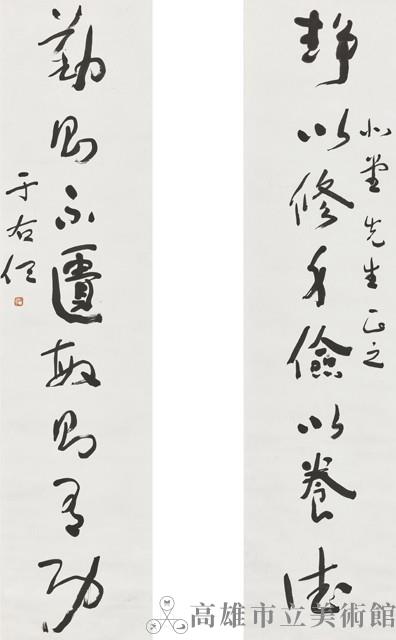 靜以修身儉以養德
小堂先生正之
勤則不匱敏則有功
于右任
高雄市立美術館